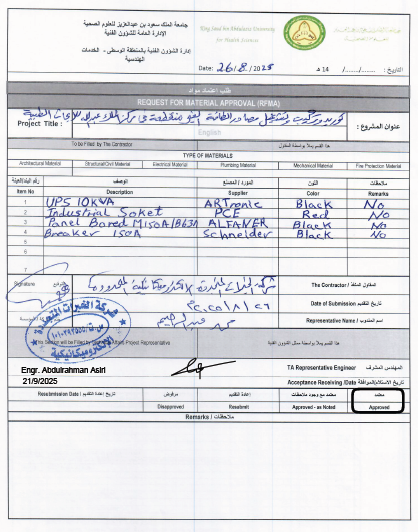 جامعة الملك سعود بن عبدالعزيز للعلوم الصحية
الإدارة العامة للشؤون الفنية
إدارة الشؤون الفنية بالمنطقة الوسطى - الخدمات الهندسية
King Saud bin Abdulaziz University
for Health Sciences
Date: 26/8/2025
التاريخ: ..../..../.... 14 هـ
طلب اعتماد مواد
REQUEST FOR MATERIAL APPROVAL (RFMA)
Project Title :
عنوان المشروع :
English
To be Filled by The Contractor
هذا القسم يملأ بواسطة المقاول
TYPE OF MATERIALS
Architectural Material Structural/Civil Material Electrical Material Plumbing Material Mechanical Material Fire Protection Material
رقم البند/العينة الوصف المورد / المصنع اللون ملاحظات
Item No Description Supplier Color Remarks
1 UPS 10KVA ARTronic Black No
2 Industrial Soket PCE Red No
3 Panel Bored M150A/B63A ALFANER Black No
4 Breaker 150A Schneider Black No
5
6
7
Signature التوقيع
The Contractor / المقاول المنفذ
Date of Submission تاريخ التقديم
٢٠٢٥/٨/٢٦
Representative Name / اسم المندوب
شركة الخبرات المتحدة
الكتروميكانيكية
هذا القسم يملأ بواسطة ممثل الشؤون الفنية
Affairs Project Representative
Engr. Abdulrahman Asiri
21/9/2025
TA Representative Engineer المهندس المشرف
Acceptance Receiving /Date تاريخ الاستلام/الموافقة
Resubmission Date / تاريخ إعادة التقديم
مرفوض
Disapproved
إعادة التقديم
Resubmit
معتمد مع وجود ملاحظات
Approved - as Noted
معتمد
Approved
Remarks / ملاحظات